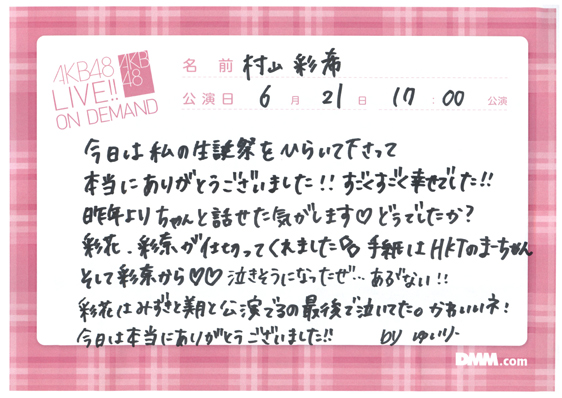 AKB48
LIVE!!
ON DEMAND
AKB
48
名前 村山彩希
公演日 6月21日 17:00公演
今日は私の生誕祭をひらいて下さって
本当にありがとうございました!! すごくすごく幸せでした!!
昨年よりちゃんと話せた気がします♡どうでしたか?
彩花、彩奈が仕切ってくれました 手紙はHKTのまーちゃん
そして彩奈から♡♡ 泣きそうになったぜ… あぶない!!
彩花はみずきと美月と公演でるの最後で泣いてた。かわいいネ!
今日は本当にありがとうございました!! by ゆいりー
DMM.com